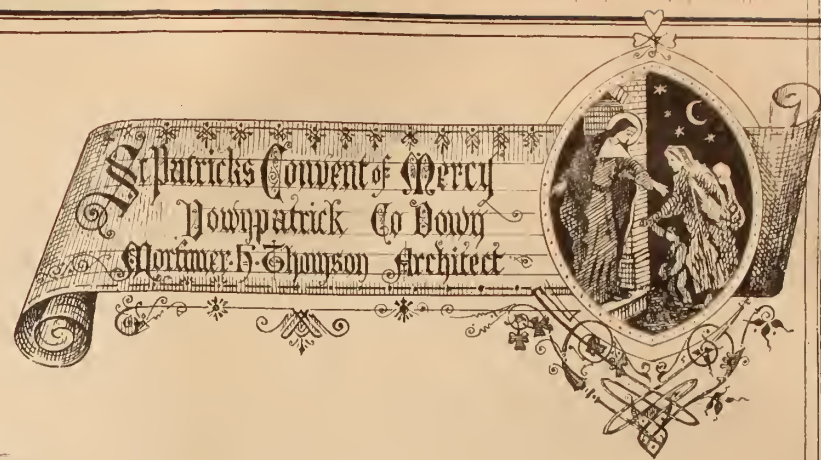 St Patricks Convent of Mercy
Downpatrick Co Down
Mortimer·H·Thomson Architect